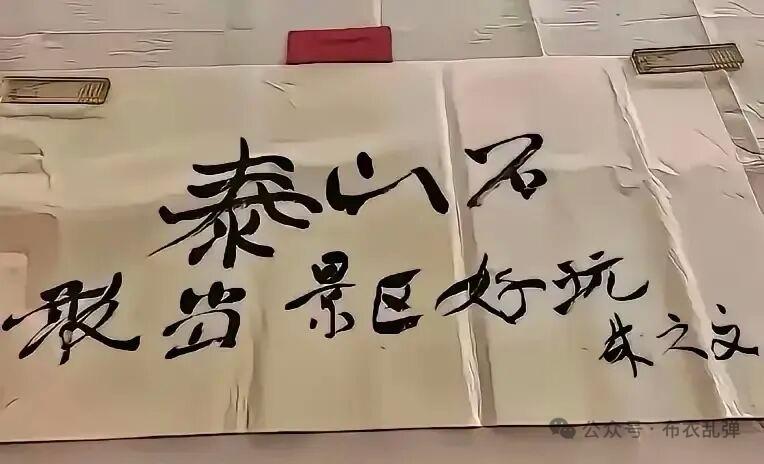 泰山石
敢当景区好玩
朱之文
公众号·布衣乱弹